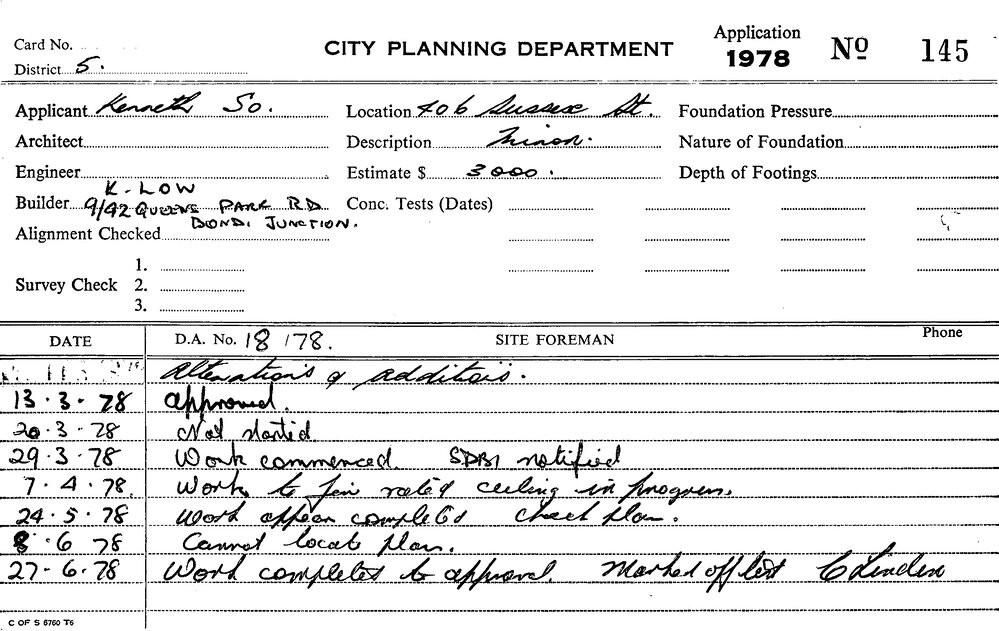 Application
Card No. CITY PLANNING DEPARTMENT 1978 No 145
District 5.
Applicant Kenneth So. Location 406 Sussex St. Foundation Pressure
Architect Description Minor. Nature of Foundation
Engineer Estimate $ 3000. Depth of Footings
K. LOW
Builder 9/42 QUEENS PARK RD Conc. Tests (Dates)
BONDI JUNCTION.
Alignment Checked
1.
Survey Check 2.
3.
DATE D.A. No. 18/78. SITE FOREMAN Phone
Alterations & additions.
13.3.78 approved.
20.3.78 Not started
29.3.78 Work commenced. SDBI notified
7.4.78. Work to fire rated ceiling in progress.
24.5.78 Work appear completed check plan.
8.6 78 Cannot locate plan.
27-6.78 Work completed to approval. Marked off list C Linden
C OF S 6760 T6